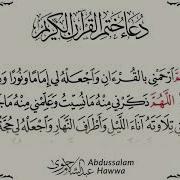 دعاء ختم القرآن الكريم
ارْحَمْنِي بِالْقُرْءَانِ وَاجْعَلْهُ لِي إِمَامًا وَنُورًا
اللَّهُمَّ ذَكِّرْنِي مِنْهُ مَا نَسِيتُ وَعَلِّمْنِي مِنْهُ مَا
تِلَاوَتَهُ آنَاءَ اللَّيْلِ وَأَطْرَافَ النَّهَارِ وَاجْعَلْهُ لِي حُجَّةً
Abdussalam
Hawwa